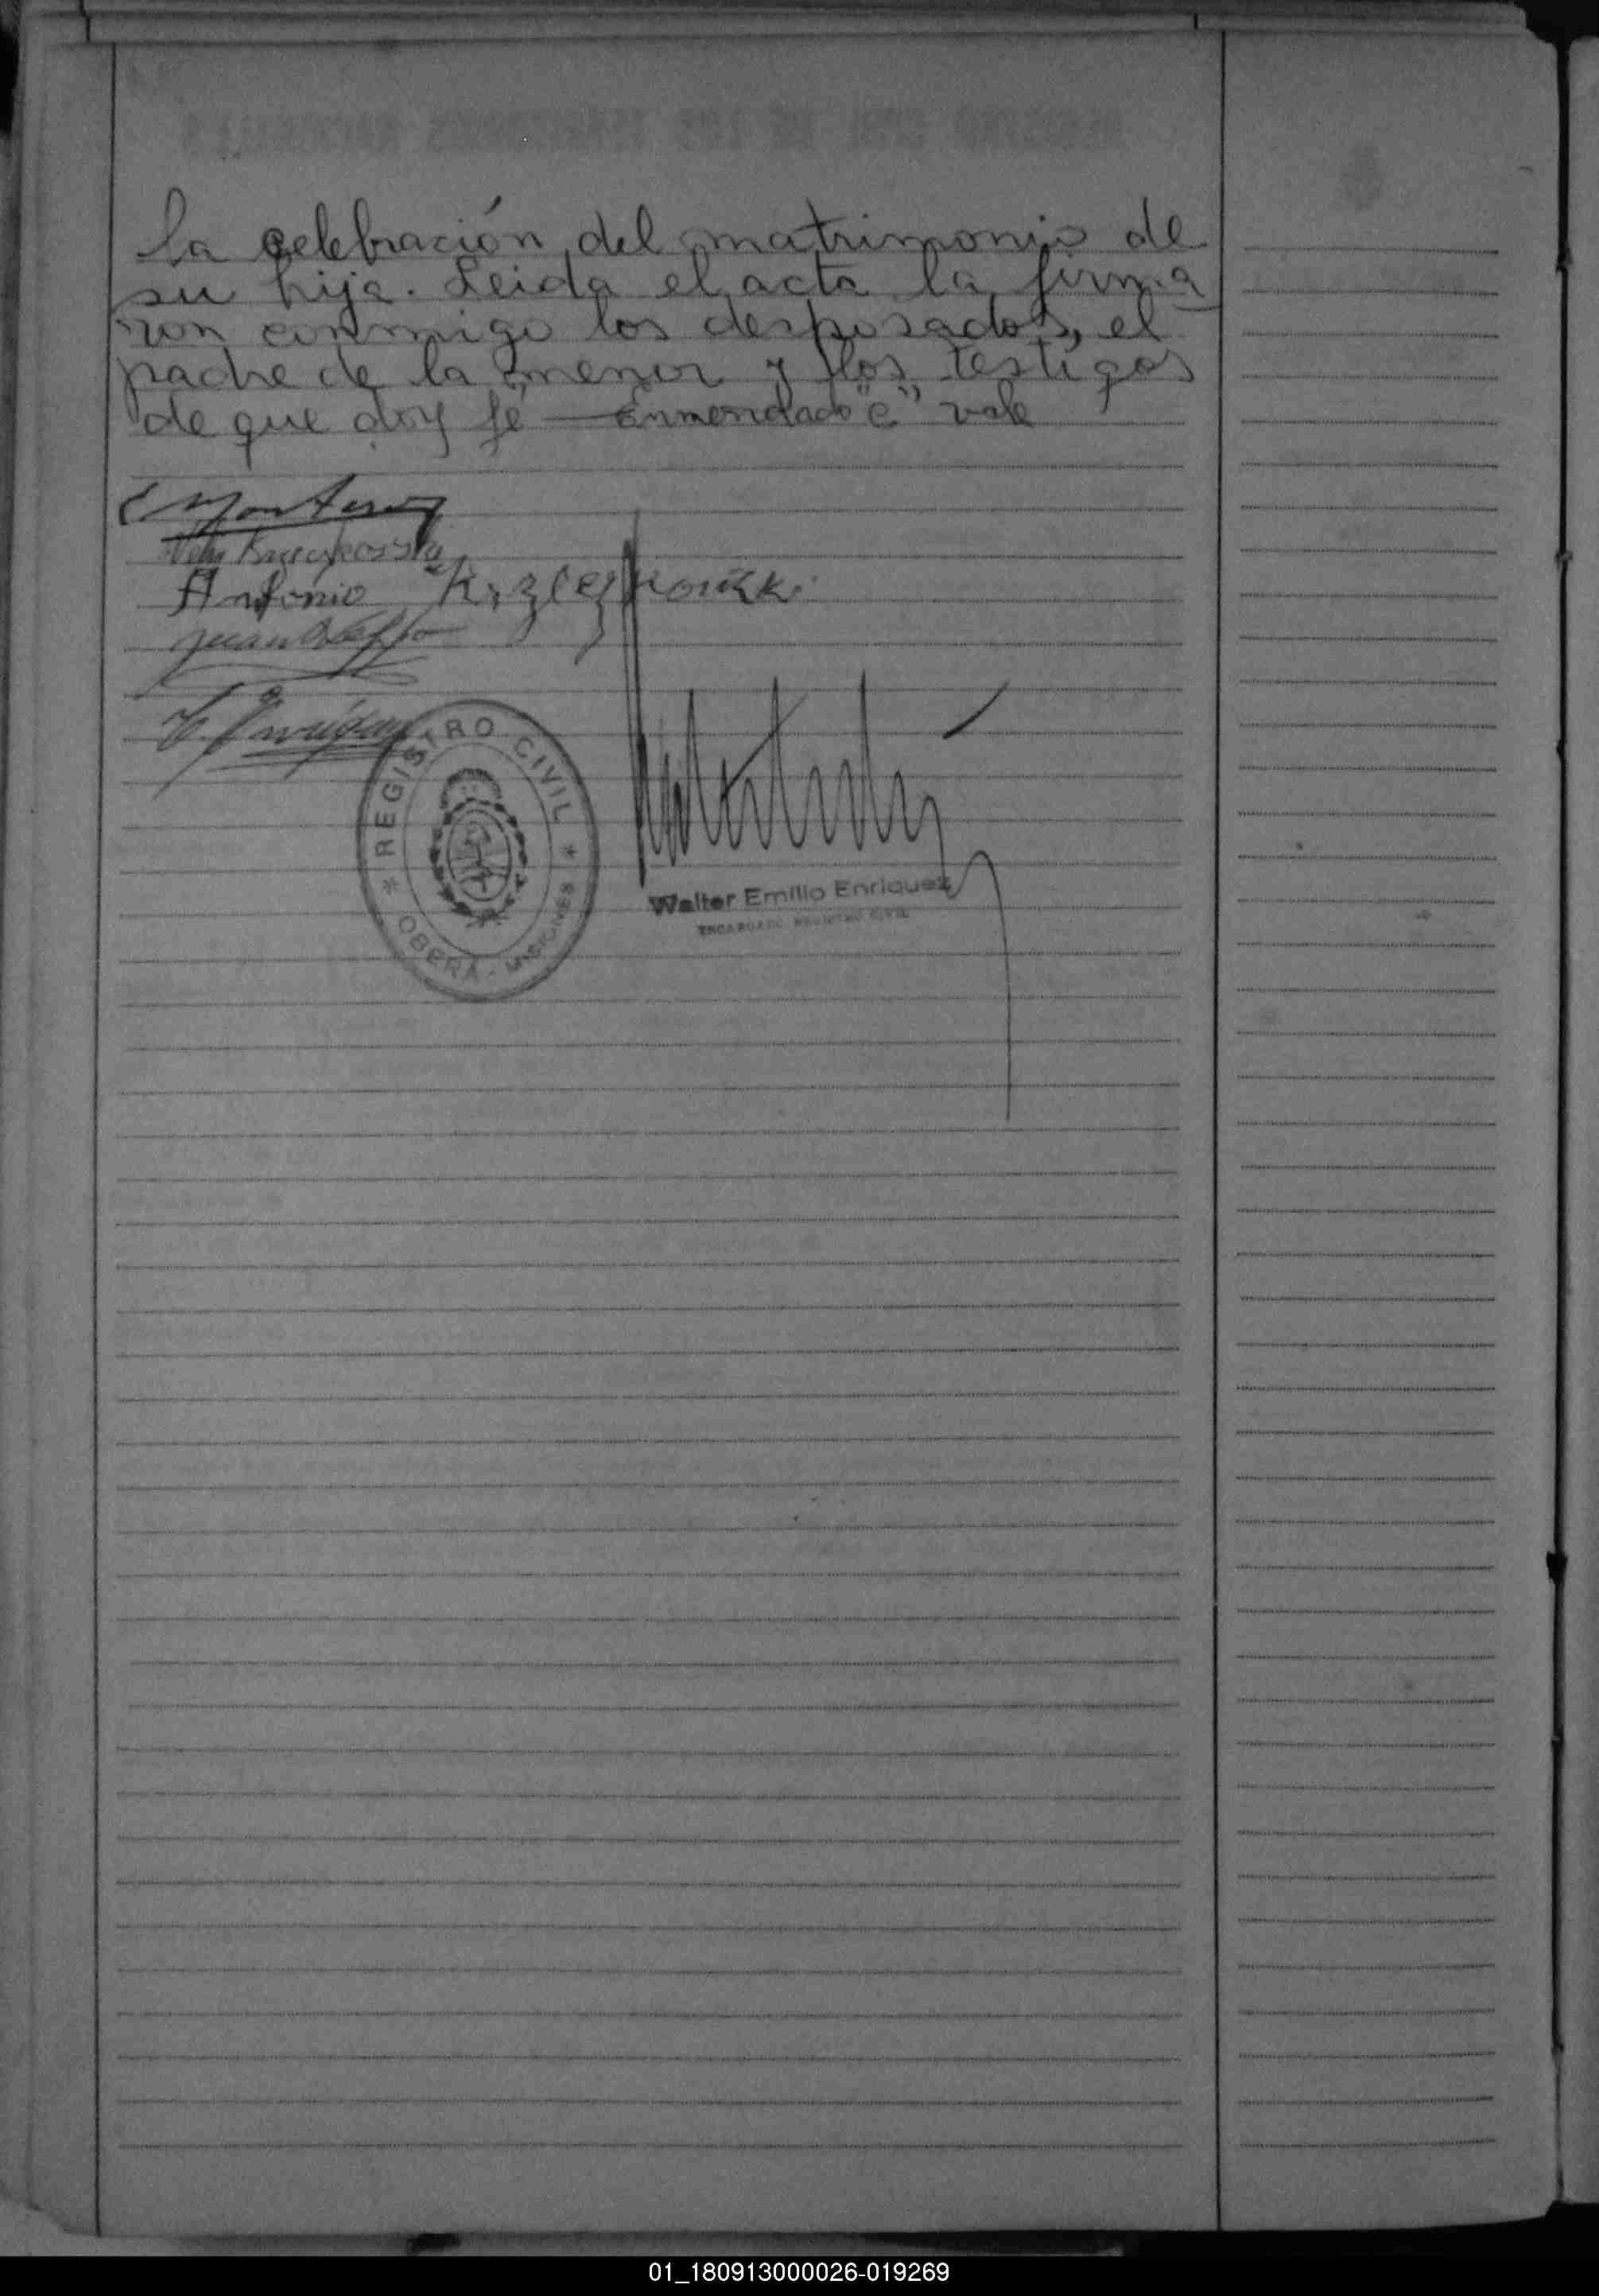 la celebración del matrimonio de
su hija. Leida el acta la firma
ron conmigo los desposados, el
padre de la menor y los testigos
de que doy fé — Enmendado "c" vale
Antonio
REGISTRO CIVIL
OBERA - MISIONES
Walter Emilio Enriquez
ENCARGADO REGISTRO CIVIL
01_180913000026-019269